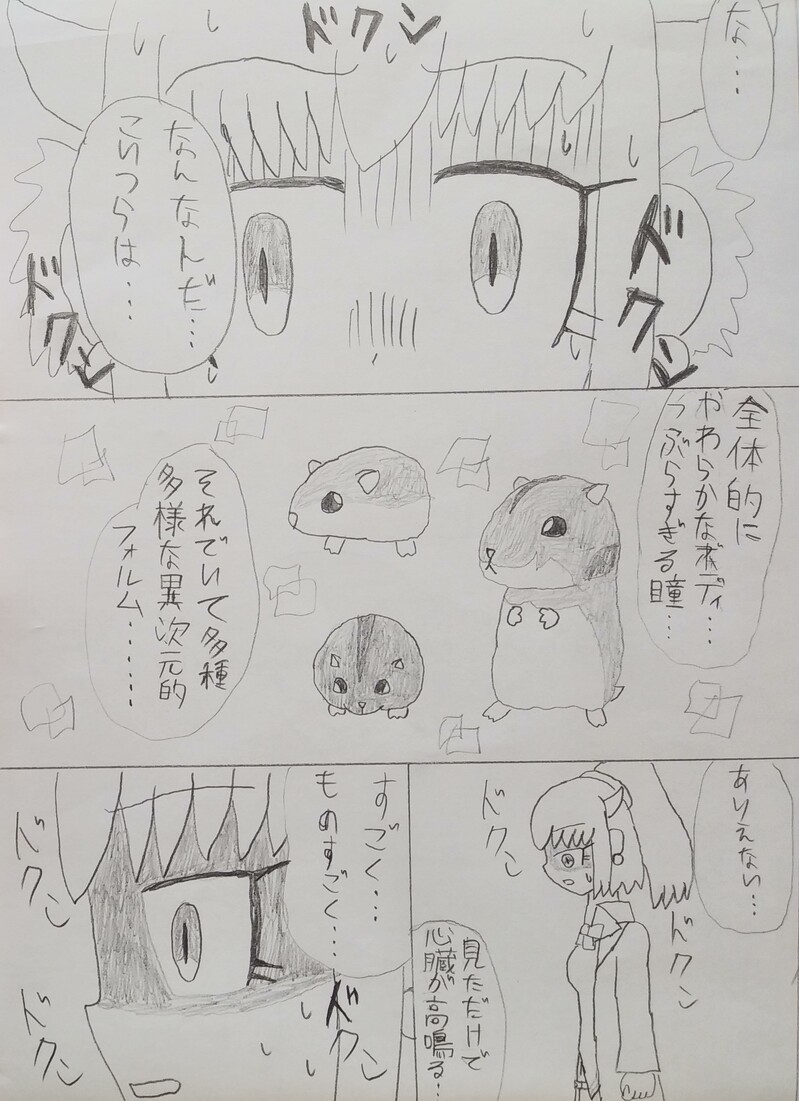 な・・・
ドクン
ドクン
なんなんだ・・・
こいつらは・・・
ドクン
全体的に
やわらかなボディ・・・
つぶらすぎる瞳・・・
それでいて多種
多様な異次元的
フォルム・・・・・・
ありえない・・・
ドクン
ドクン
見ただけで
心臓が高鳴る・・
すごく・・・
ものすごく・・・
ドクン
ドクン
ドクン